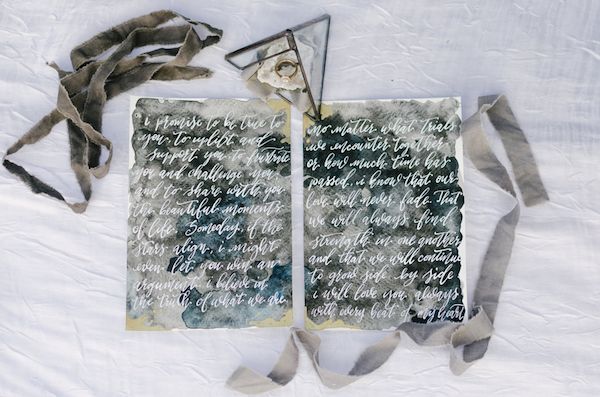 i promise to be true to
you to uplift and
support you to frustrate
you and challenge you
and to share with you
the beautiful moments
of life. Someday, if the
stars align, i might
even let you win an
argument. i believe in
the truth of what we are
no matter what trials
we encounter together
or how much time has
passed, i know that our
love will never fade. That
we will always find
strength in one another
and that we will continue
to grow side by side
i will love you always
with every beat of my heart